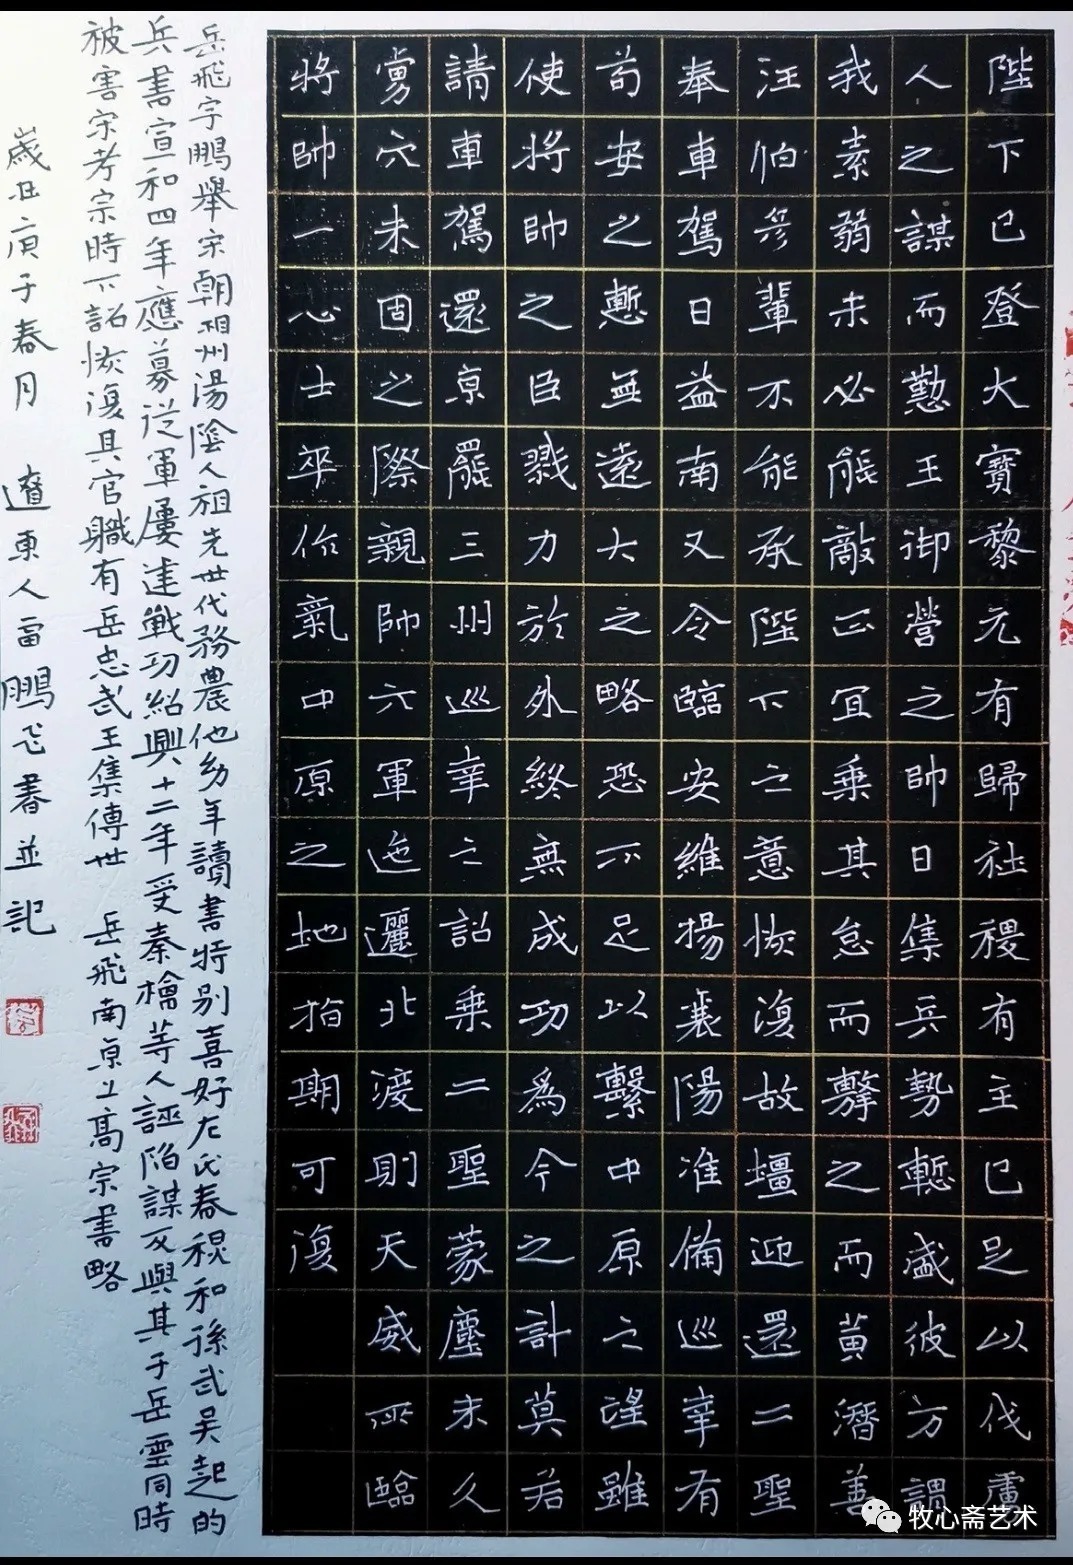 陛下已登大寶黎元有歸社稷有主已足以伐虜
人之謀而懃王御營之帥日集兵勢蹔盛彼方謂
我素弱未必能敵正宜乗其怠而擊之而黄潛善
汪伯彦輩不能承陛下之意恢復故壃迎還二聖
奉車駕日益南又令臨安維揚襄陽准備巡幸有
苟安之慙無遠大之略恐不足以繫中原之望雖
使將帥之臣戮力於外終無成功為今之計莫若
請車駕還亰罷三州巡幸之詔乗二聖蒙塵未久
虜穴未固之際親帥六軍迤邐北渡則天威所臨
將帥一心士卒作氣中原之地指期可復
岳飛字鵬舉宋朝相州湯陰人祖先世代務農他幼年讀書特别喜好左氏春秋和孫武吴起的
兵書宣和四年應募從軍屢建戰功紹興十二年受秦檜等人誣陷謀反與其子岳雲同時
被害宋孝宗時下詔恢復其官職有岳忠武王集傳世 岳飛南京上高宗書略
歲在庚子春月 遼東人雷鵬飞書並記
牧心斋艺术